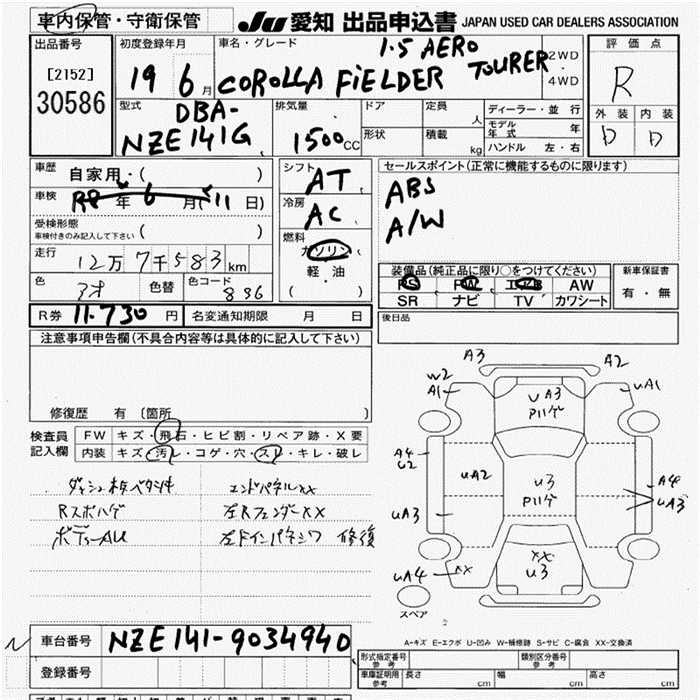 車内保管・守衛保管
JU 愛知 出品申込書 JAPAN USED CAR DEALERS ASSOCIATION
出品番号 [2152] 30586
初度登録年月 19 6 月
車名・グレード 1.5 AERO TOURER
COROLLA FIELDER
2WD ・ 4WD
評価点 R
外装 内装
D D
型式 DBA-
NZE141G
排気量 1500cc
ドア 定員 人
形状 積載 kg
ディーラー・並行
モデル年式 年
ハンドル 左・右
車歴 自家用・( )
車検 R8 年 6 月 (11 日)
受検形態
車検付きのみ記入して下さい ( )
走行 12万7千583km
色 色替 色コード
R券 11.730 円 名変通知期限 月 日
シフト AT
冷房 AC
燃料 ガソリン
軽・油
( )
セールスポイント(正常に機能するものに限ります)
ABS
A/W
装備品(純正品に限り○をつけてください)
PS PW エアB AW
SR ナビ TV カワシート
新車保証書
有・無
後日品
注意事項申告欄(不具合内容等は具体的に記入して下さい)
修復歴 有 〔箇所 〕
検査員記入欄
FW キズ・飛石・ヒビ割・リペア跡・X要
内装 キズ・汚レ・コゲ・穴・スレ・キレ・破レ
エンドパネルXX
Rスポハゲ 左RフェンダーXX
修復
A3 A2
W2
A1 UA1
UA3
Pハゲ
A4
U2
UA2
U3
Pハゲ
A4
UA3
UA3
XX
U3
UA4 XX
スペア
A-キズ E-エクボ U-凹み W-補修跡 S-サビ C-腐食 XX-交換済
車台番号 NZE141-9034940
登録番号
形式指定番号 参考
類別区分番号 参考
車庫証明用 参考 長さ cm 幅 cm 高さ cm